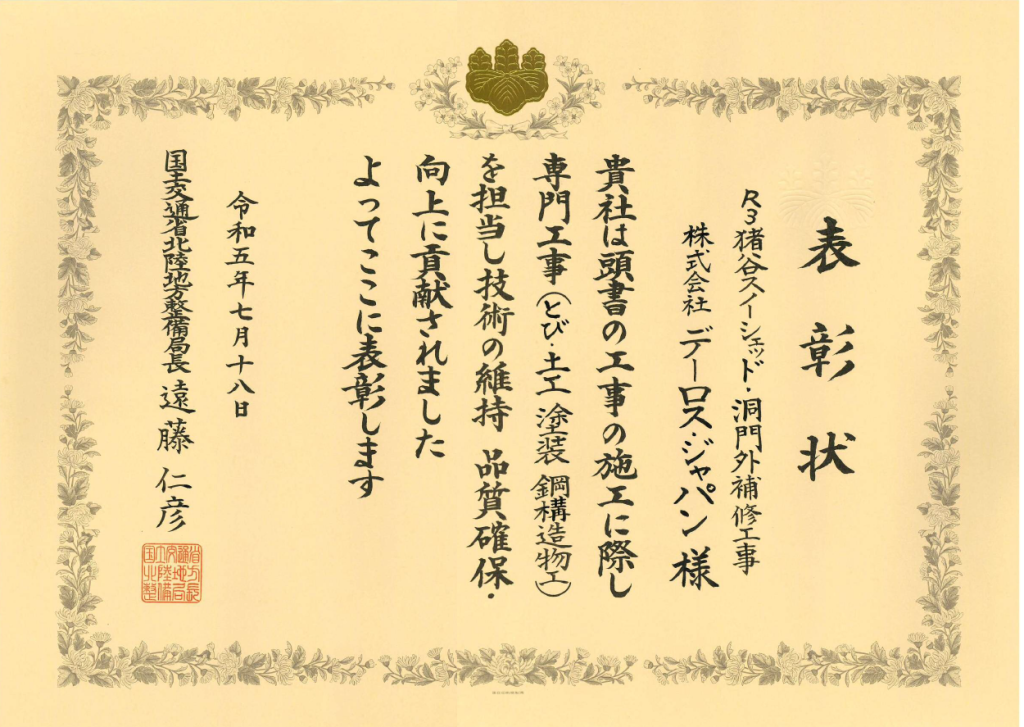 表彰状
R3猪谷スイーシェッド・洞門外補修工事
株式会社 デーロス・ジャパン 様
貴社は頭書の工事の施工に際し
専門工事(とび・土工 塗装 鋼構造物工)
を担当し技術の維持 品質確保・
向上に貢献されました
よってここに表彰します
令和五年七月十八日
国土交通省北陸地方整備局長 遠藤 仁彦